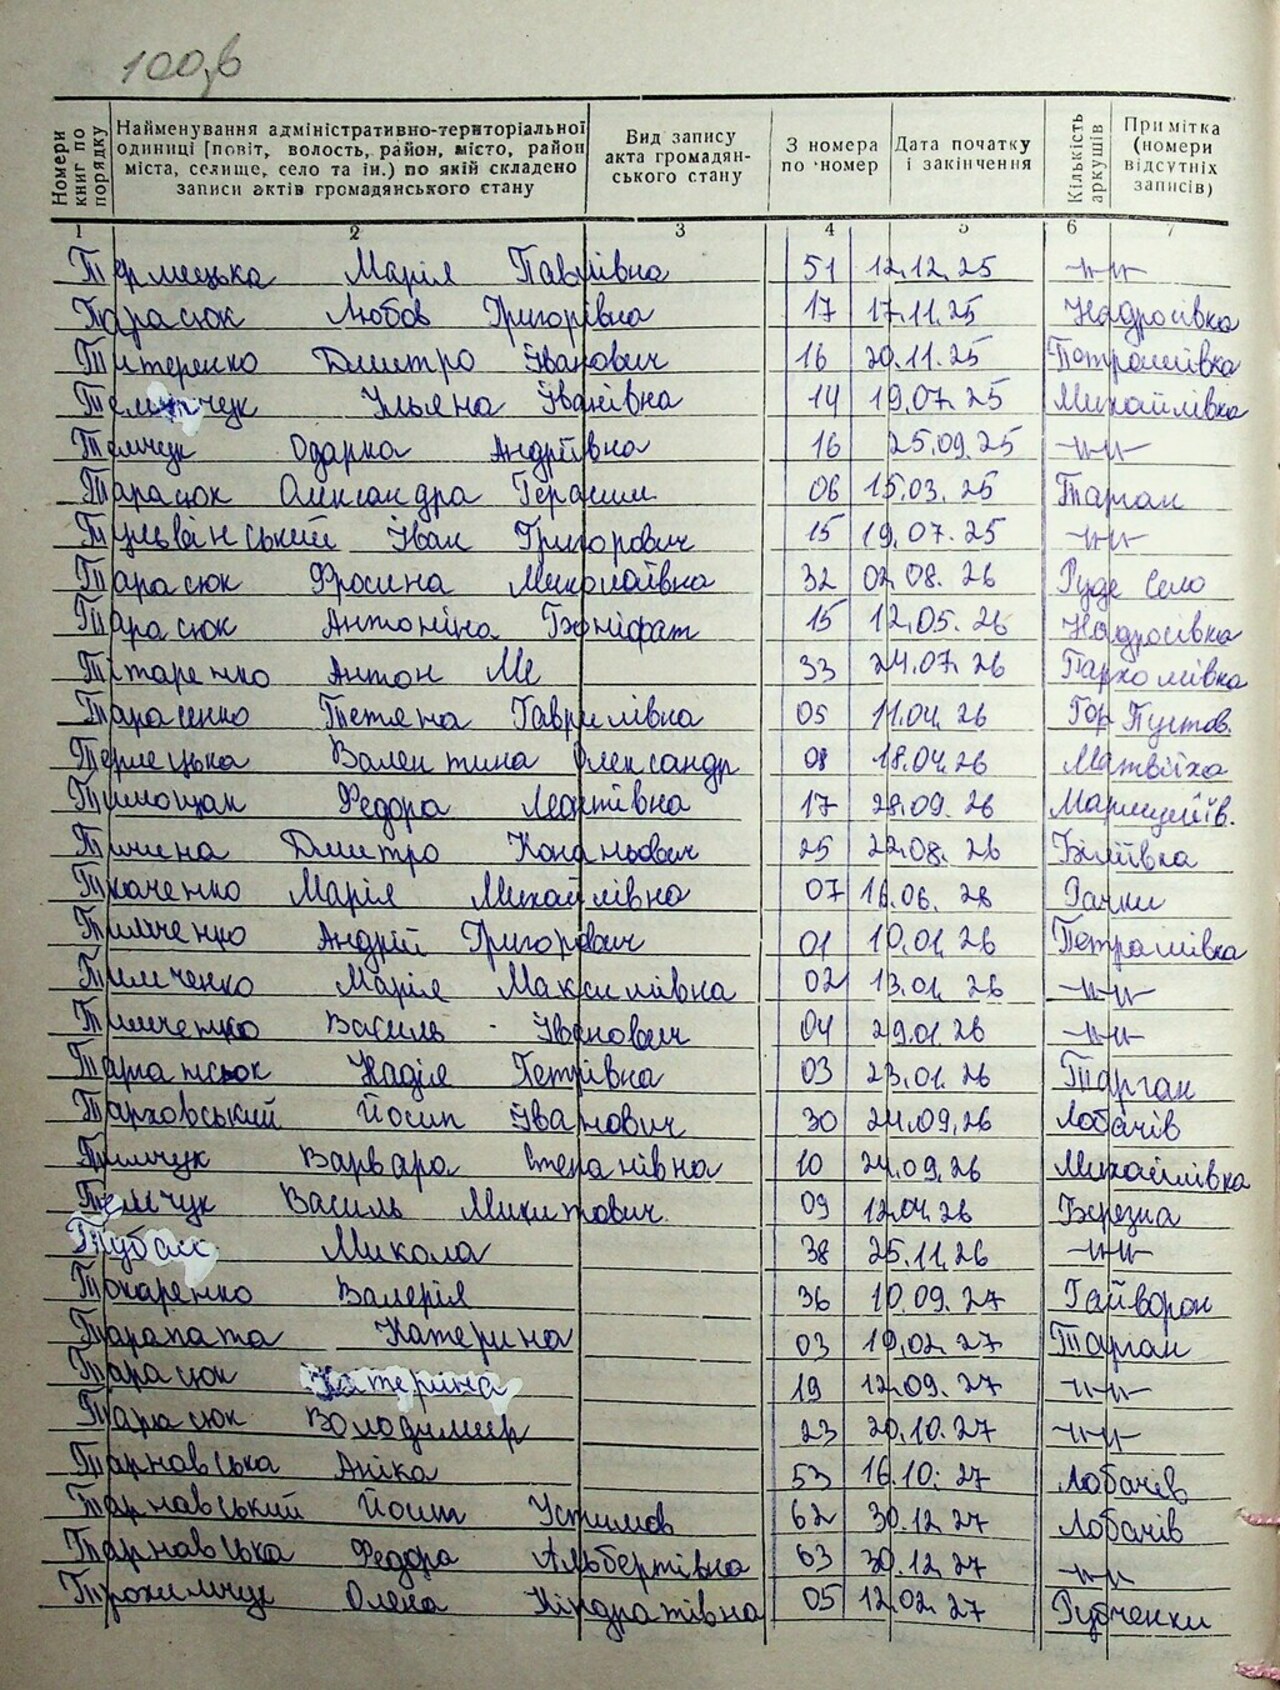 100,в
Номери книг по порядку
Найменування адміністративно-територіальної одиниці [повіт, волость, район, місто, район міста, селище, село та ін.) по якій складено записи актів громадянського стану
Вид запису акта громадян-ського стану
З номера по номер
Дата початку і закінчення
Кількість аркушів
Примітка (номери відсутніх записів)
1 2 3 4 5 6 7
Термецька Марія Павлівна 51 12.12.25 -"-"-
Тарасюк Любов Григорівна 17 17.11.25 Надросівка
Титеренко Дмитро Іванович 16 20.11.25 Петрашівка
Ульяна Іванівна 14 19.07.25 Михайлівка
Темчук Одарка Андріївна 16 25.09.25 -"-"-
Тарасюк Олександра Герасим 06 15.03.25 Тарган
Тульвінський Іван Григорович 15 19.07.25 -"-"-
Тарасюк Фросина Миколаївна 32 02.08.26 Руде Село
Тарасюк Антоніна Боніфат 15 12.05.26 Надросівка
Тітаренко Антон Ме 33 24.07.26 Пархомівка
Тарасенко Тетяна Гаврилівна 05 11.04.26 Гор Пустов.
Терлецька Валентина Олександр 08 18.04.26 Матвіїха
Тимощак Федора Леонтівна 17 28.09.26
Тичина Дмитро Кононьович 25 22.08.26 Біліївка
Ткаченко Марія Михайлівна 07 16.06.26 Рачки
Тимченко Андрій Григорович 01 10.01.26 Петрашівка
Тимченко Марія Максимівна 02 13.01.26 -"-"-
Тимченко Василь Іванович 04 29.01.26 -"-"-
Надія Петрівна 03 23.01.26 Тарган
Тарховський Йосип Іванович 30 24.09.26 Лобачів
Тимчук Варвара Степанівна 10 24.09.26 Михайлівка
Темчук Василь Микитович 09 12.04.26 Березна
Микола 38 25.11.26 -"-"-
Токаренко Валерія 36 10.09.27 Гайворон
Тарапата Катерина 03 19.02.27 Тарган
Тарасюк Катерина 19 12.09.27 -"-"-
Тарасюк Володимир 23 20.10.27 -"-"-
Тарнавська Аніка 53 16.10.27 Лобачів
Тарнавський Йосип Устимов 62 30.12.27 Лобачів
Тарнавська Федора Альбертівна 63 30.12.27 -"-"-
Трохимчук Олена Кіндратівна 05 12.02.27 Рубченки